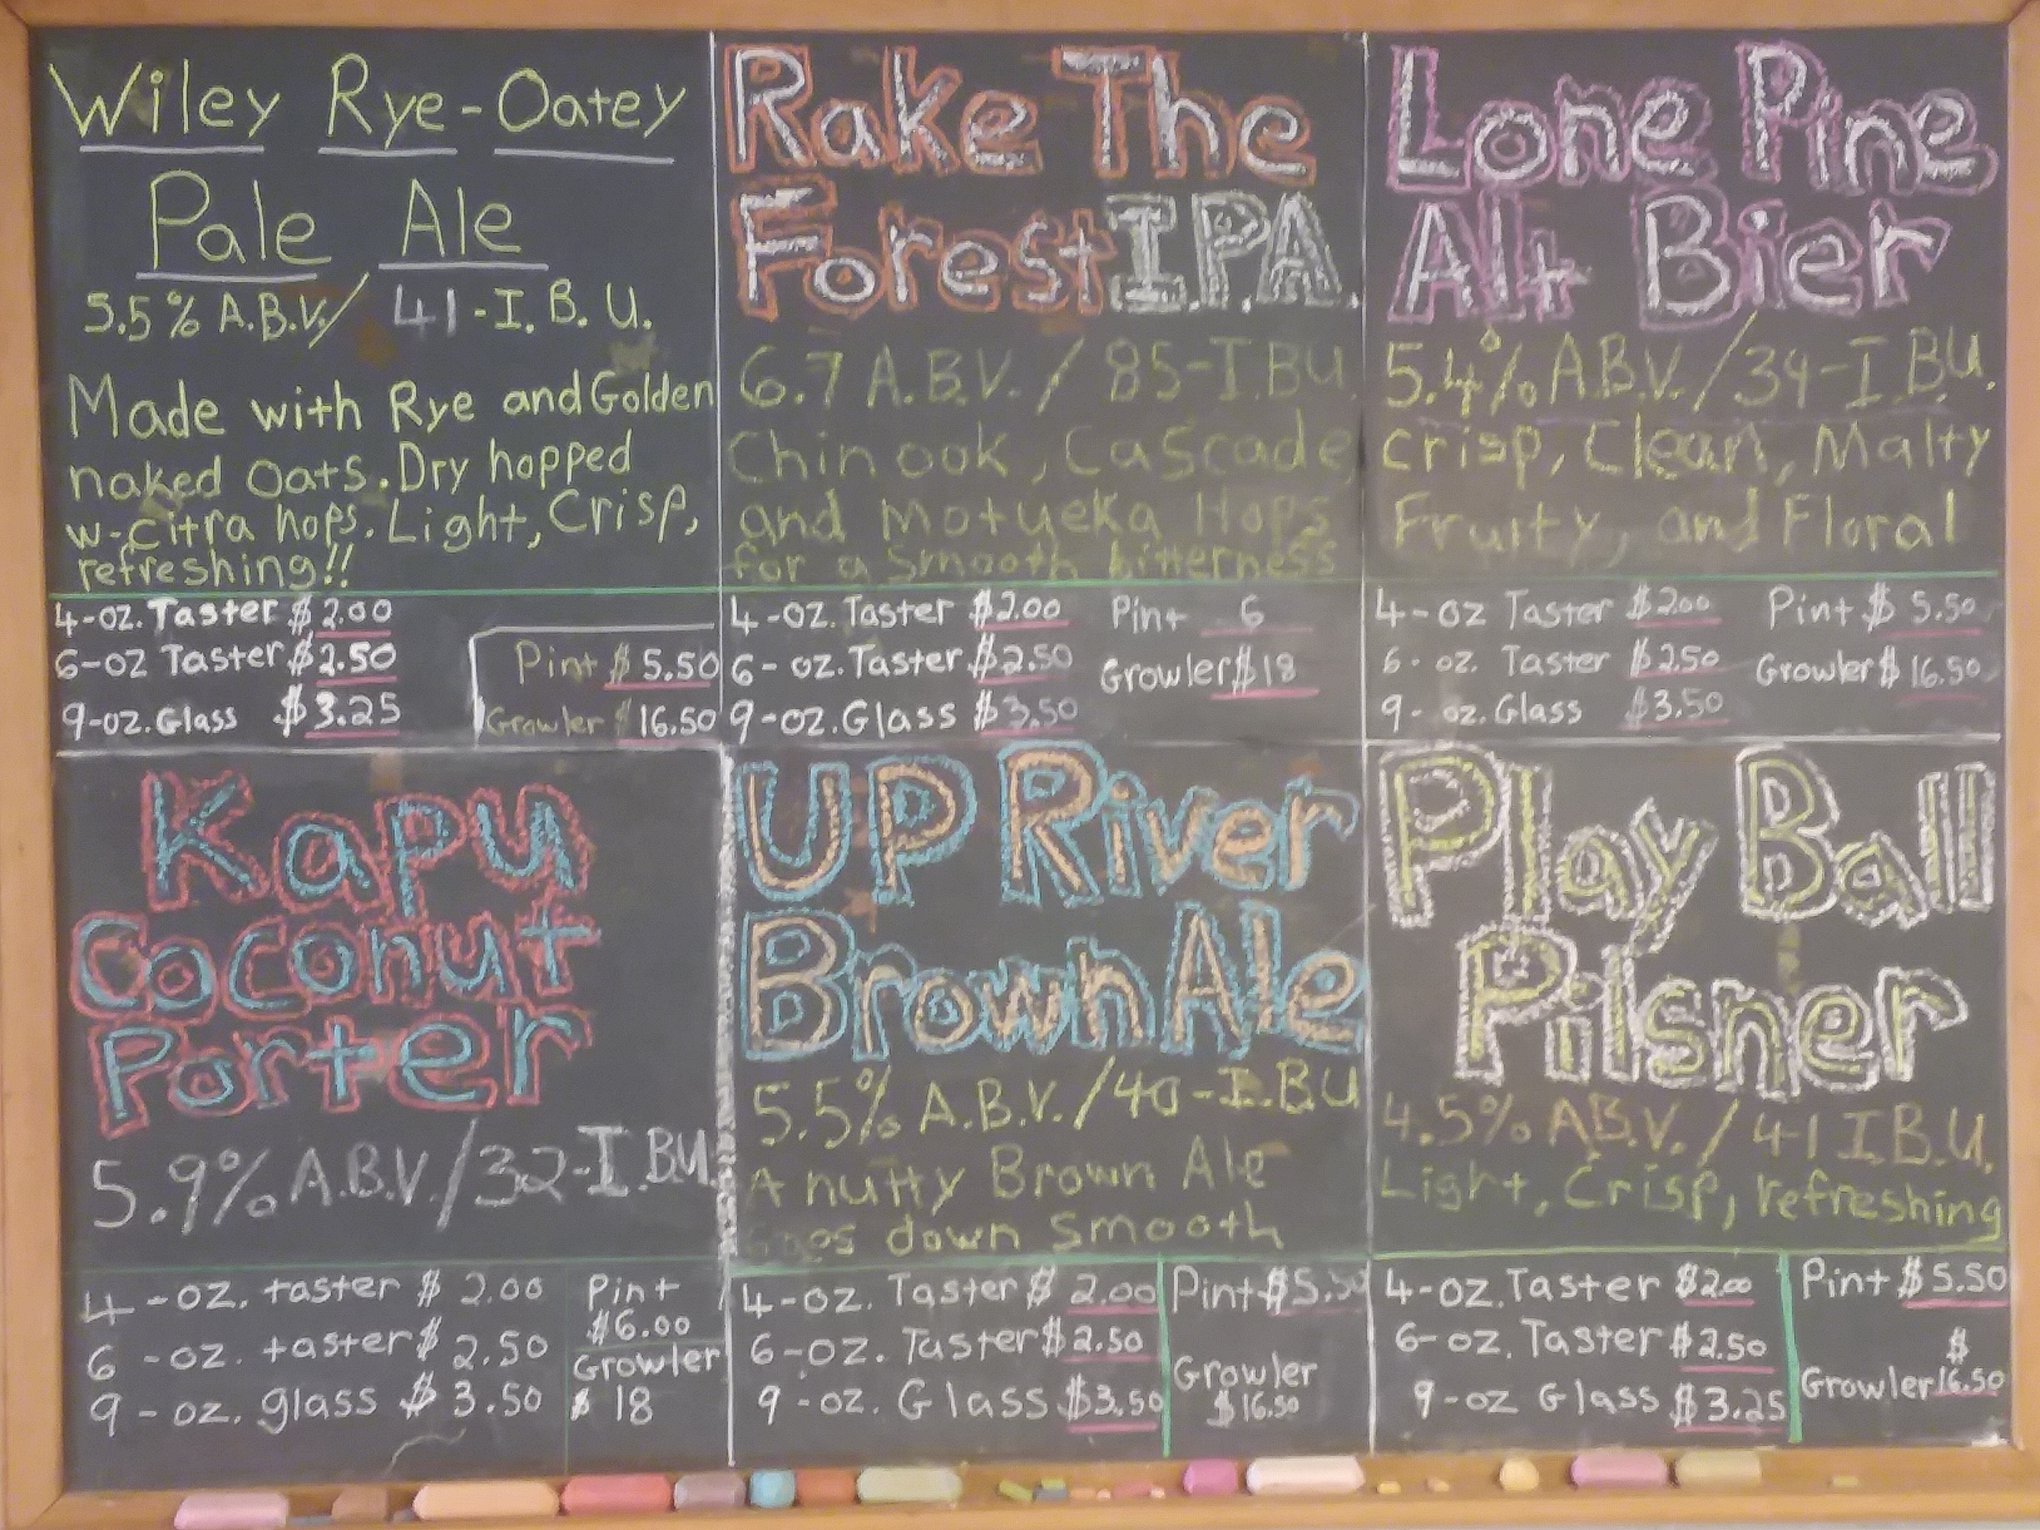 Wiley Rye-Oatey
Pale Ale
5.5% A.B.V./ 41-I.B.U.
Made with Rye and Golden
naked Oats. Dry hopped
w-Citra hops. Light, Crisp,
refreshing!!
4-oz. Taster $2.00
6-oz Taster $2.50
9-oz. Glass $3.25
Pint $5.50
Growler $16.50
Rake The
Forest I.P.A.
6.7 A.B.V. / 85-I.B.U.
Chinook, Cascade,
and Motueka Hops
for a Smooth bitterness
4-oz. Taster $2.00
6-oz. Taster $2.50
9-oz. Glass $3.50
Pint 6
Growler $18
Lone Pine
Alt Bier
5.4% A.B.V. / 39-I.B.U.
Crisp, Clean, Malty
Fruity, and Floral
4-oz Taster $2.00
6-oz. Taster $2.50
9-oz. Glass $3.50
Pint $5.50
Growler $16.50
Kapu
Coconut
Porter
5.9% A.B.V. / 32-I.B.U.
4-oz. taster $2.00
6-oz. taster $2.50
9-oz. glass $3.50
Pint
$6.00
Growler
$18
UP River
Brown Ale
5.5% A.B.V. / 40-I.B.U
A nutty Brown Ale
Goes down smooth
4-oz. Taster $2.00
6-oz. Taster $2.50
9-oz. Glass $3.50
Pint $5.50
Growler
$16.50
Play Ball
Pilsner
4.5% A.B.V. / 41 I.B.U.
Light, Crisp, refreshing
4-oz. Taster $2.00
6-oz. Taster $2.50
9-oz Glass $3.25
Pint $5.50
$
Growler 16.50